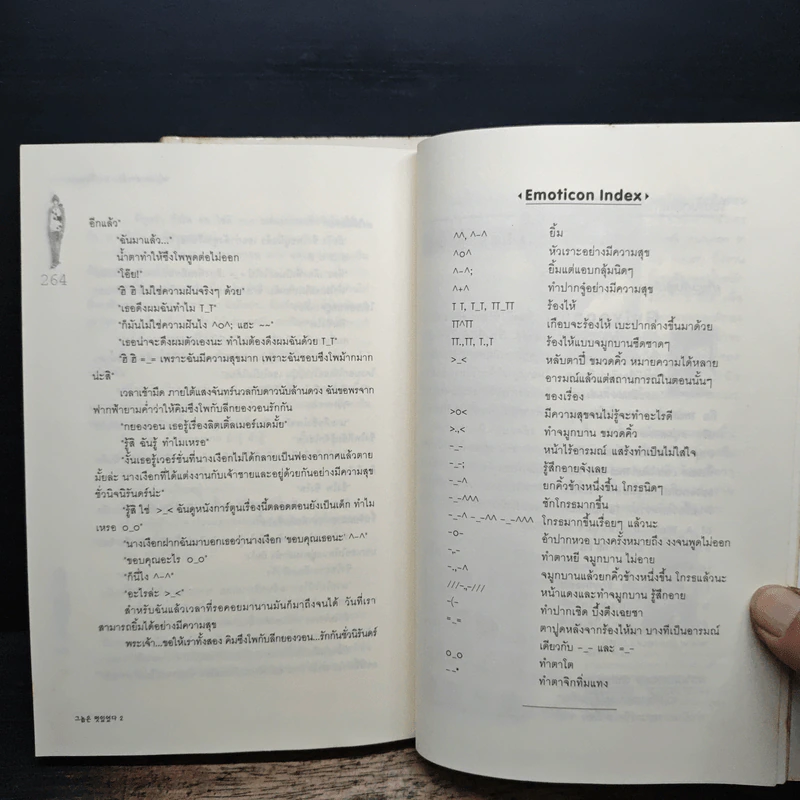 264
อีกแล้ว"
"ฉันมาแล้ว..."
น้ำตาทำให้ซึงโพพูดต่อไม่ออก
"โอ๊ย!"
"ฮิ ฮิ ไม่ใช่ความฝันจริงๆ ด้วย"
"เธอดึงผมฉันทำไม T_T"
"ก็มันไม่ใช่ความฝันไง ^o^; แฮะ --"
"เธอน่าจะดึงผมตัวเองนะ ทำไมต้องดึงผมฉันด้วย T_T"
"ฮิ ฮิ =_= เพราะฉันมีความสุขมาก เพราะฉันชอบซึงโพม้ากมาก
น่ะสิ"
เวลาเช้ามืด ภายใต้แสงจันทร์นวลกับดาวนับล้านดวง ฉันขอพรจาก
ฟากฟ้ายามค่ำว่าให้คิมซึงโพกับลีกยองวอนรักกัน
"กยองวอน เธอรู้เรื่องลิตเติ้ลเมอร์เมดมั้ย"
"รู้สิ ฉันรู้ ทำไมเหรอ"
"งั้นเธอรู้เวอร์ชั่นที่นางเงือกไม่ได้กลายเป็นฟองอากาศแล้วตาย
มั้ยล่ะ นางเงือกที่ได้แต่งงานกับเจ้าชายและอยู่ด้วยกันอย่างมีความสุข
ชั่วนิจนิรันดร์น่ะ"
"รู้สิ ใช่ >_< ฉันดูหนังการ์ตูนเรื่องนี้ตลอดตอนยังเป็นเด็ก ทำไม
เหรอ o_o"
"นางเงือกฝากฉันมาบอกเธอว่านางเงือก 'ขอบคุณเธอนะ' ^-^"
"ขอบคุณอะไร o_o"
"ก็นี่ไง ^-^"
"อะไรล่ะ >_<"
สำหรับฉันแล้วเวลาที่รอคอยมานานมันก็มาถึงจนได้ วันที่เรา
สามารถยิ้มได้อย่างมีความสุข
พระเจ้า...ขอให้เราทั้งสอง คิมซึงโพกับลีกยองวอน...รักกันชั่วนิรันดร์
그놈은 멋있었다 2
Emoticon Index
^^, ^-^ ยิ้ม
^o^ หัวเราะอย่างมีความสุข
^-^; ยิ้มแต่แอบกลุ้มนิดๆ
^+^ ทำปากจู๋อย่างมีความสุข
T T, T_T, TT_TT ร้องไห้
TT^TT เกือบจะร้องไห้ เบะปากล่างขึ้นมาด้วย
TT.,TT, T.,T ร้องไห้แบบจมูกบานซืดซาดๆ
>_< หลับตาปี๋ ขมวดคิ้ว หมายความได้หลาย
อารมณ์แล้วแต่สถานการณ์ในตอนนั้นๆ
ของเรื่อง
>o< มีความสุขจนไม่รู้จะทำอะไรดี
>.,< ทำจมูกบาน ขมวดคิ้ว
-_- หน้าไร้อารมณ์ แสร้งทำเป็นไม่ใส่ใจ
-_-; รู้สึกอายจังเลย
-_-^ ยกคิ้วข้างหนึ่งขึ้น โกรธนิดๆ
-_-^^^ ชักโกรธมากขึ้น
-_-^ -_-^^ -_-^^^ โกรธมากขึ้นเรื่อยๆ แล้วนะ
-o- อ้าปากหวอ บางครั้งหมายถึง งงจนพูดไม่ออก
-,.- ทำตาหยี จมูกบาน ไม่อาย
-.,-^ จมูกบานแล้วยกคิ้วข้างหนึ่งขึ้น โกรธแล้วนะ
///-,.-/// หน้าแดงและทำจมูกบาน รู้สึกอาย
-(- ทำปากเชิด บึ้งตึงเฉยชา
=_= ตาปูดหลังจากร้องไห้มา บางทีเป็นอารมณ์
เดียวกับ -_- และ =_-
o_o ทำตาโต
--* ทำตาจิกทิ่มแทง